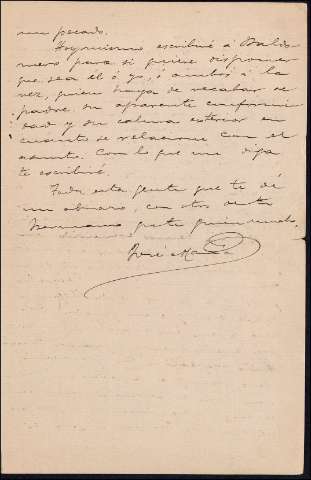 un pecado.
Hoy mismo escribiré á Baldo
mero para si quiere disponer
que sea él ó yo, ó ambos á la
vez, quien haya de recabar de
padre su aparente conformi
dad y su calma exterior en
cuanto se relacione con el
asunto. Con lo que me diga
te escribiré.
Toda esta gente que te dé
un abrazo, con otro de tu
hermano que te quiere mucho,
José María